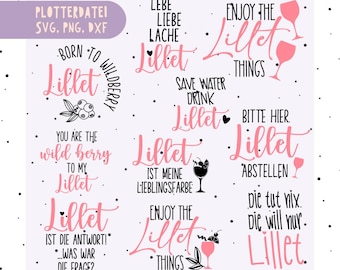 PLOTTERDATEI
SVG, PNG, DXF
BORN TO WILDBERRY
Lillet
YOU ARE THE
wild berry
TO MY
Lillet
Lillet
IST DIE ANTWORT!
...WAS WAR
DIE FRAGE?
LEBE
LIEBE
LACHE
Lillet
SAVE WATER
DRINK
Lillet
Lillet
IST MEINE
LIEBLINGSFARBE
ENJOY THE
Lillet
THINGS
ENJOY THE
Lillet
THINGS
BITTE HIER
Lillet
ABSTELLEN
die tut nix.
die will nur
Lillet